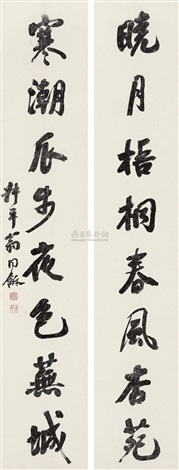 曉月梧桐春風杏苑
寒潮瓜步花色蕪城
叔平翁同龢